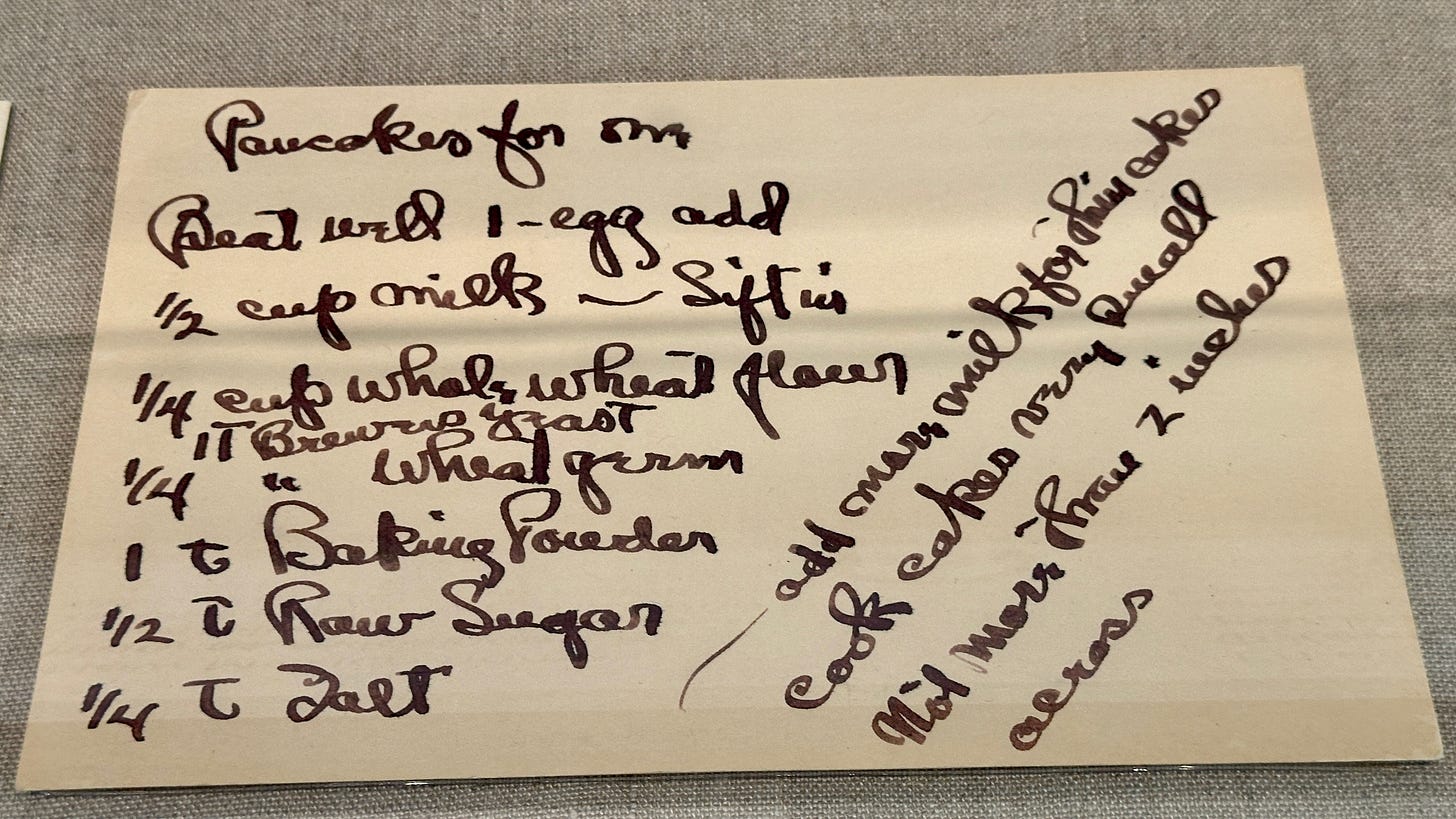 Pancakes for one
Beat well 1-egg add
1/2 cup milk — Sift in
1/4 cup whole wheat flour
1T Brewers yeast
1/4 " wheat germ
1 t Baking Powder
1/2 t Raw Sugar
1/4 t Salt
add more milk for thin cakes
cook cakes very small
Not more than 2 inches
across